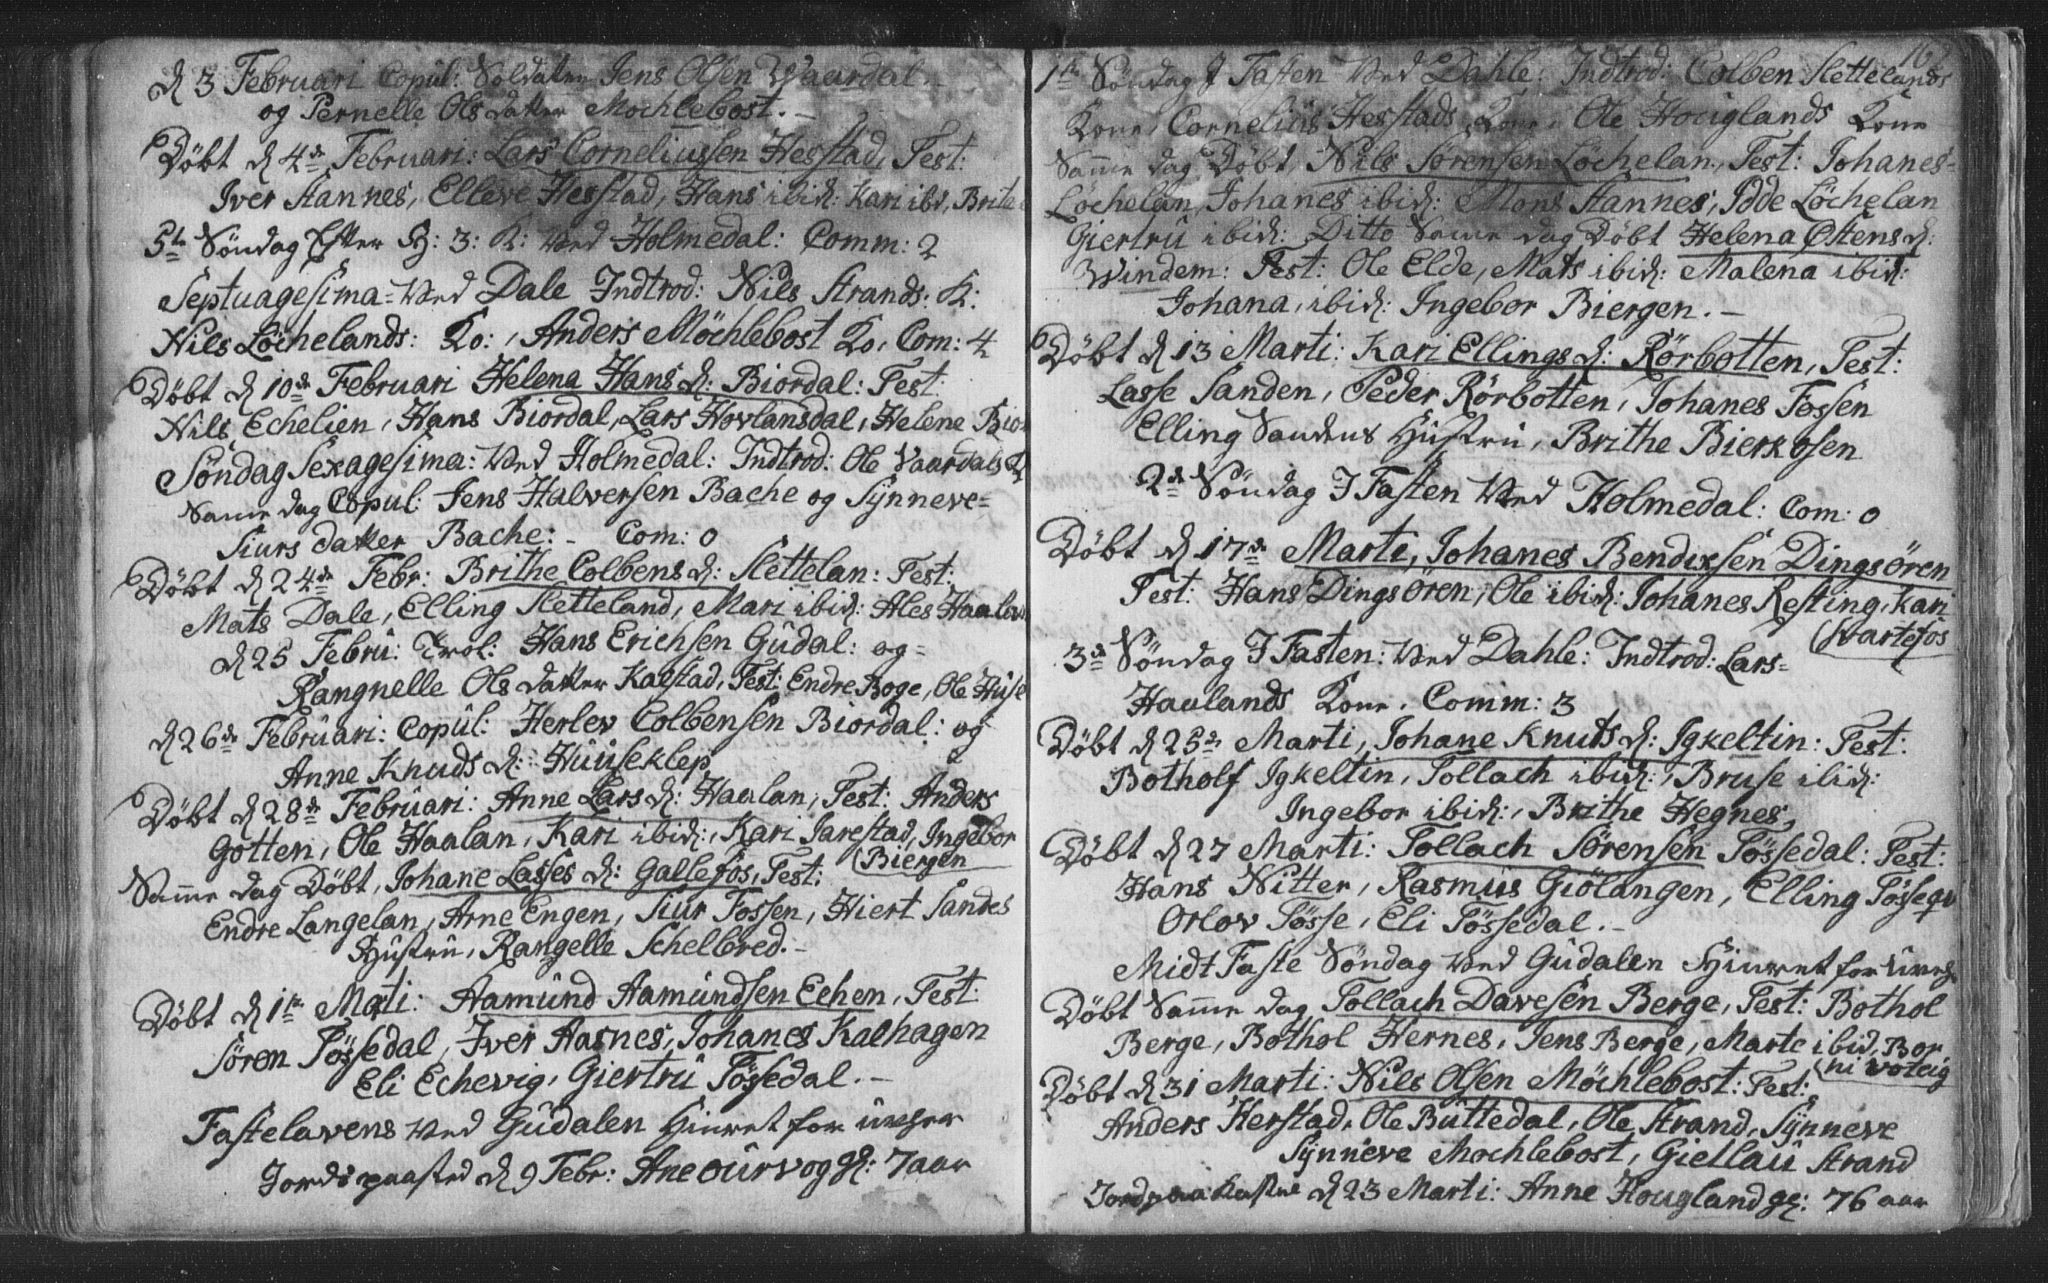 d 3 Februari Copul: Soldaten Jens Olsen Waardal.
og Pernelle Ols datter Mochlebost. -
Döbt d 4de Februari: Lars Corneliussen Hesstad, Test:
Iver Stannes, Elleve Hesstad, Hans ibid: Kari ibd, Brite
5te Söndag Efter H: 3: K: ved Holmedal: Comm: 2
Septuagesima ved Dale Indtrod: Nils Strands: K:
Nils Löchelands: Ko:, Anders Möchlebost Ko, Com: 4
Döbt d 10de Februari Helena Hans d: Biordal: Test:
Nils Echelien, Hans Biordal, Lars Hovlansdal, Helene Bior
Söndag Sexagesima: ved Holmedal: Indtrod: Ole Vaardals K
Samme dag Copul: Jens Halversen Bache og Synneve=
Siurs datter Bache: - Com: 0
Döbt d 24de Febr: Brithe Colbens d: Slettelan: Test:
Mats Dale, Elling Sletteland, Mari ibid: Ales Haalan
d 25 Febru: Trol: Hans Erichsen Gudal: og=
Rangnelle Ols datter Kalstad, Test: Endre Boge, Ole Huse
d 26de Februari: Copul: Herlev Colbensen Biordal: og
Anne Knuds d: Huuseklep
Döbt d 28de Februari: Anne Lars d: Haalan, Test: Anders
Gotten, Ole Haalan, Kari ibid:, Kari Jarestad, Ingebor
Biergen
Samme dag Döbt, Johane Lasses d: Gallefos, Test:
Endre Langelan, Arne Engen, Siur Fossen, Hiert Sandes
Hustru, Rangelle Schelbred. -
Döbt d 1te Marti: Aamund Aamundsen Echen, Test:
Sören Tössedal, Iver Aasnes, Johanes Kalhagen
Eli Echevig, Giertru Tössedal. -
Fastelavens ved Gudalen Hinret for uveyer
Jords paasted d 9 Febr: Ane ourvog gl: 7 aar
167
1te Söndag I Fasten ved Dahle: Indtrod: Colben Slettelands
Kone, Cornelius Hesstads Kone, Ole Houglands Kone
Samme dag Döbt, Nils Sörensen Löchelan, Test: Johanes=
Löchelan, Johanes ibid: Mons Stannes, Odde Löchelan
Giertru ibid: Ditto Samme dag Döbt Helena Östens d:
Windem: Test: Ole Elde, Mats ibid: Malena ibid:
Johana, ibid: Ingebor Biergen. -
Döbt d 13 Marti: Kari Ellings d: Rörbotten, Test:
Lasse Sanden, Peder Rörbotten, Johanes Fossen
Elling Sandens Hustru, Brithe Bierkosen
2de Söndag I Fasten ved Holmedal: Com: 0
Döbt d 17de Marti, Johanes Bendixsen Dingsören
Test: Hans Dingsören, Ole ibid: Johanes Resting, Kari
Svartefos
3de Söndag I Fasten: ved Dahle: Indtrod: Lars=
Haalands Kone. Comm: 3
Döbt d 25de Marti, Johane Knuts d: Igkeltin: Test:
Botholf Igkeltin, Tollach ibid:, Bruse ibid:
Ingebor ibid:, Brithe Hegnes,
Döbt d 27 Marti: Tollach Sörensen Tössedal: Test:
Hans Nitter, Rasmus Giölangen, Elling Tösseqv
Orlov Tösse, Eli Tössedal. -
Midt Faste Söndag ved Gudalen Hinret for uveye
Döbt Samme dag, Tollach Davesen Berge, Test: Bothol
Berge, Bothol Hernes, Jens Berge, Marte ibid, Bor
ni voteig
Döbt d 31 Marti: Nils Olsen Möchlebost: Test:
Anders Herstad, Ole Buttedal, Ole Strand, Synneve
Synneve Mochlebost, Giellau Strand
Jord paa Kastne d 23 Marti: Anne Hougland gl: 76 aar